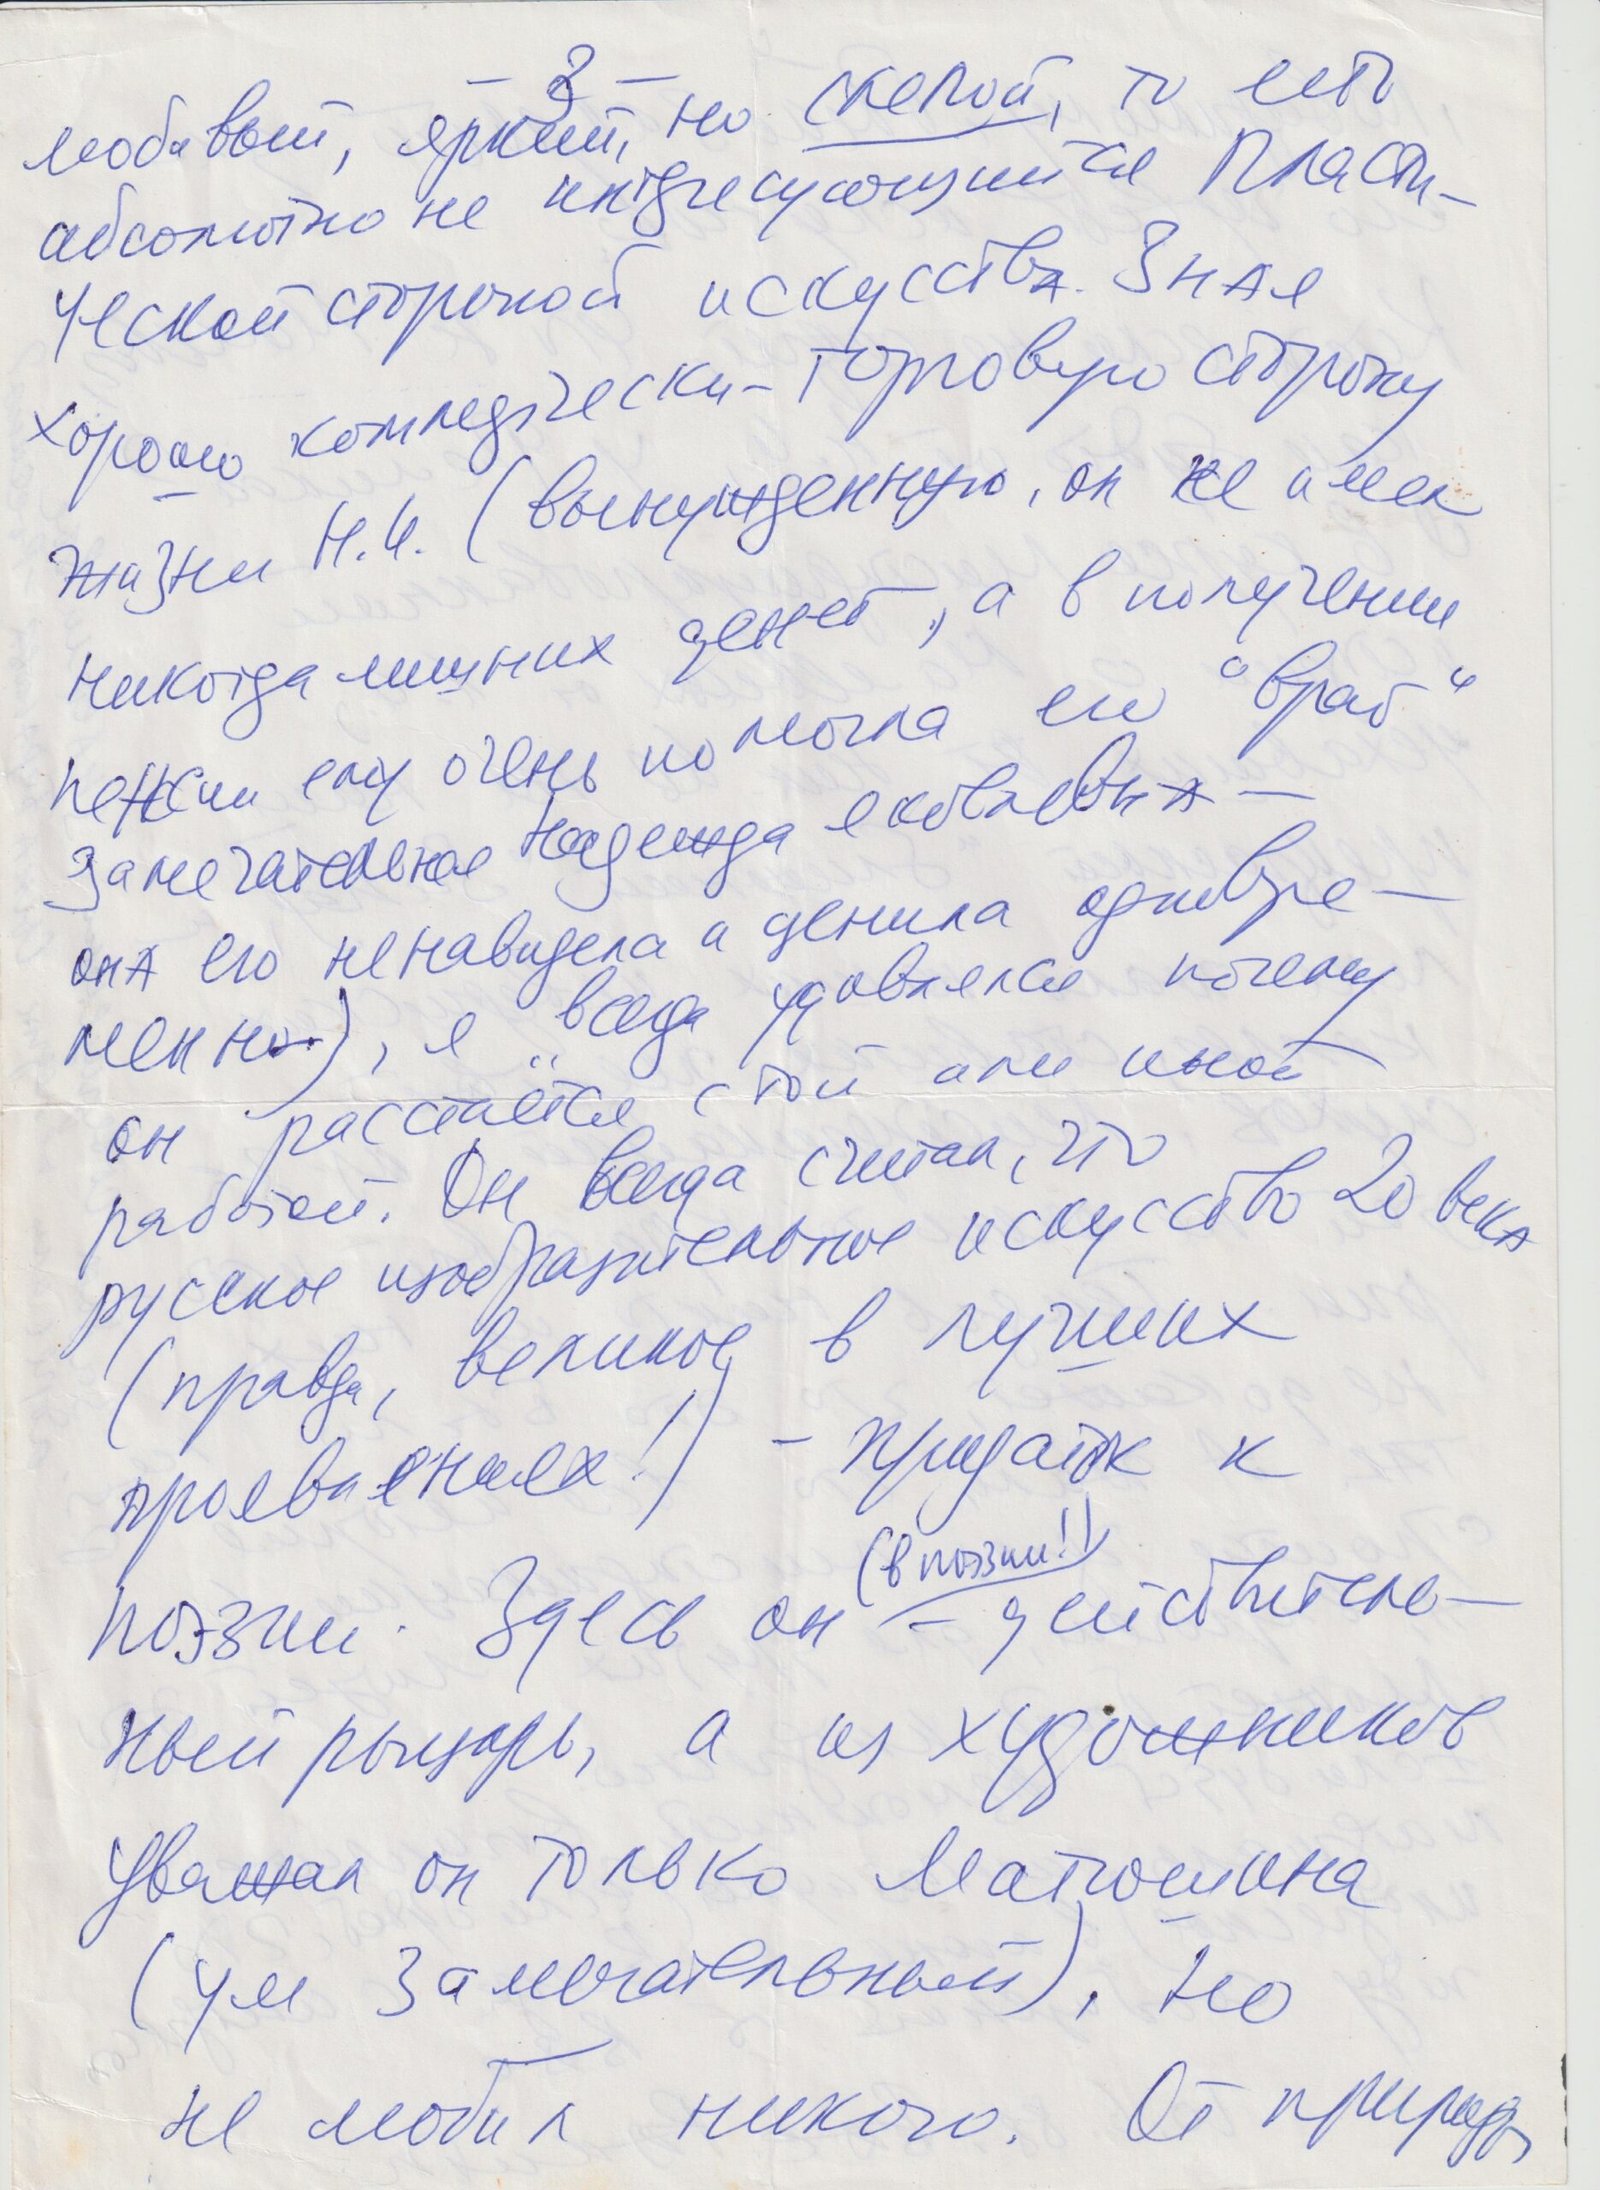 - 3 -
любивый, яркий, но слепой, то есть
абсолютно не интересующийся пласти-
ческой стороной искусства. Зная
хорошо коммерчески-торговую сторону
жизни Н.И. (вынужденную, он не имел
никогда лишних денег, а в получении
пенсии ему очень помогла его "враг"
замечательная Надежда Яковлевна -
она его ненавидела и ценила одновре-
менно), я всегда удивлялся почему
он расстаётся с той или иной
работой. Он всегда считал, что
русское изобразительное искусство 20 века
(правда, великое в лучших
проявлениях!) - придаток к
поэзии. Здесь он (в поэзии!) - действитель-
ный рыцарь, а из художников
уважал он только Матюшина
(ум замечательный), но
не любил никого. От природы